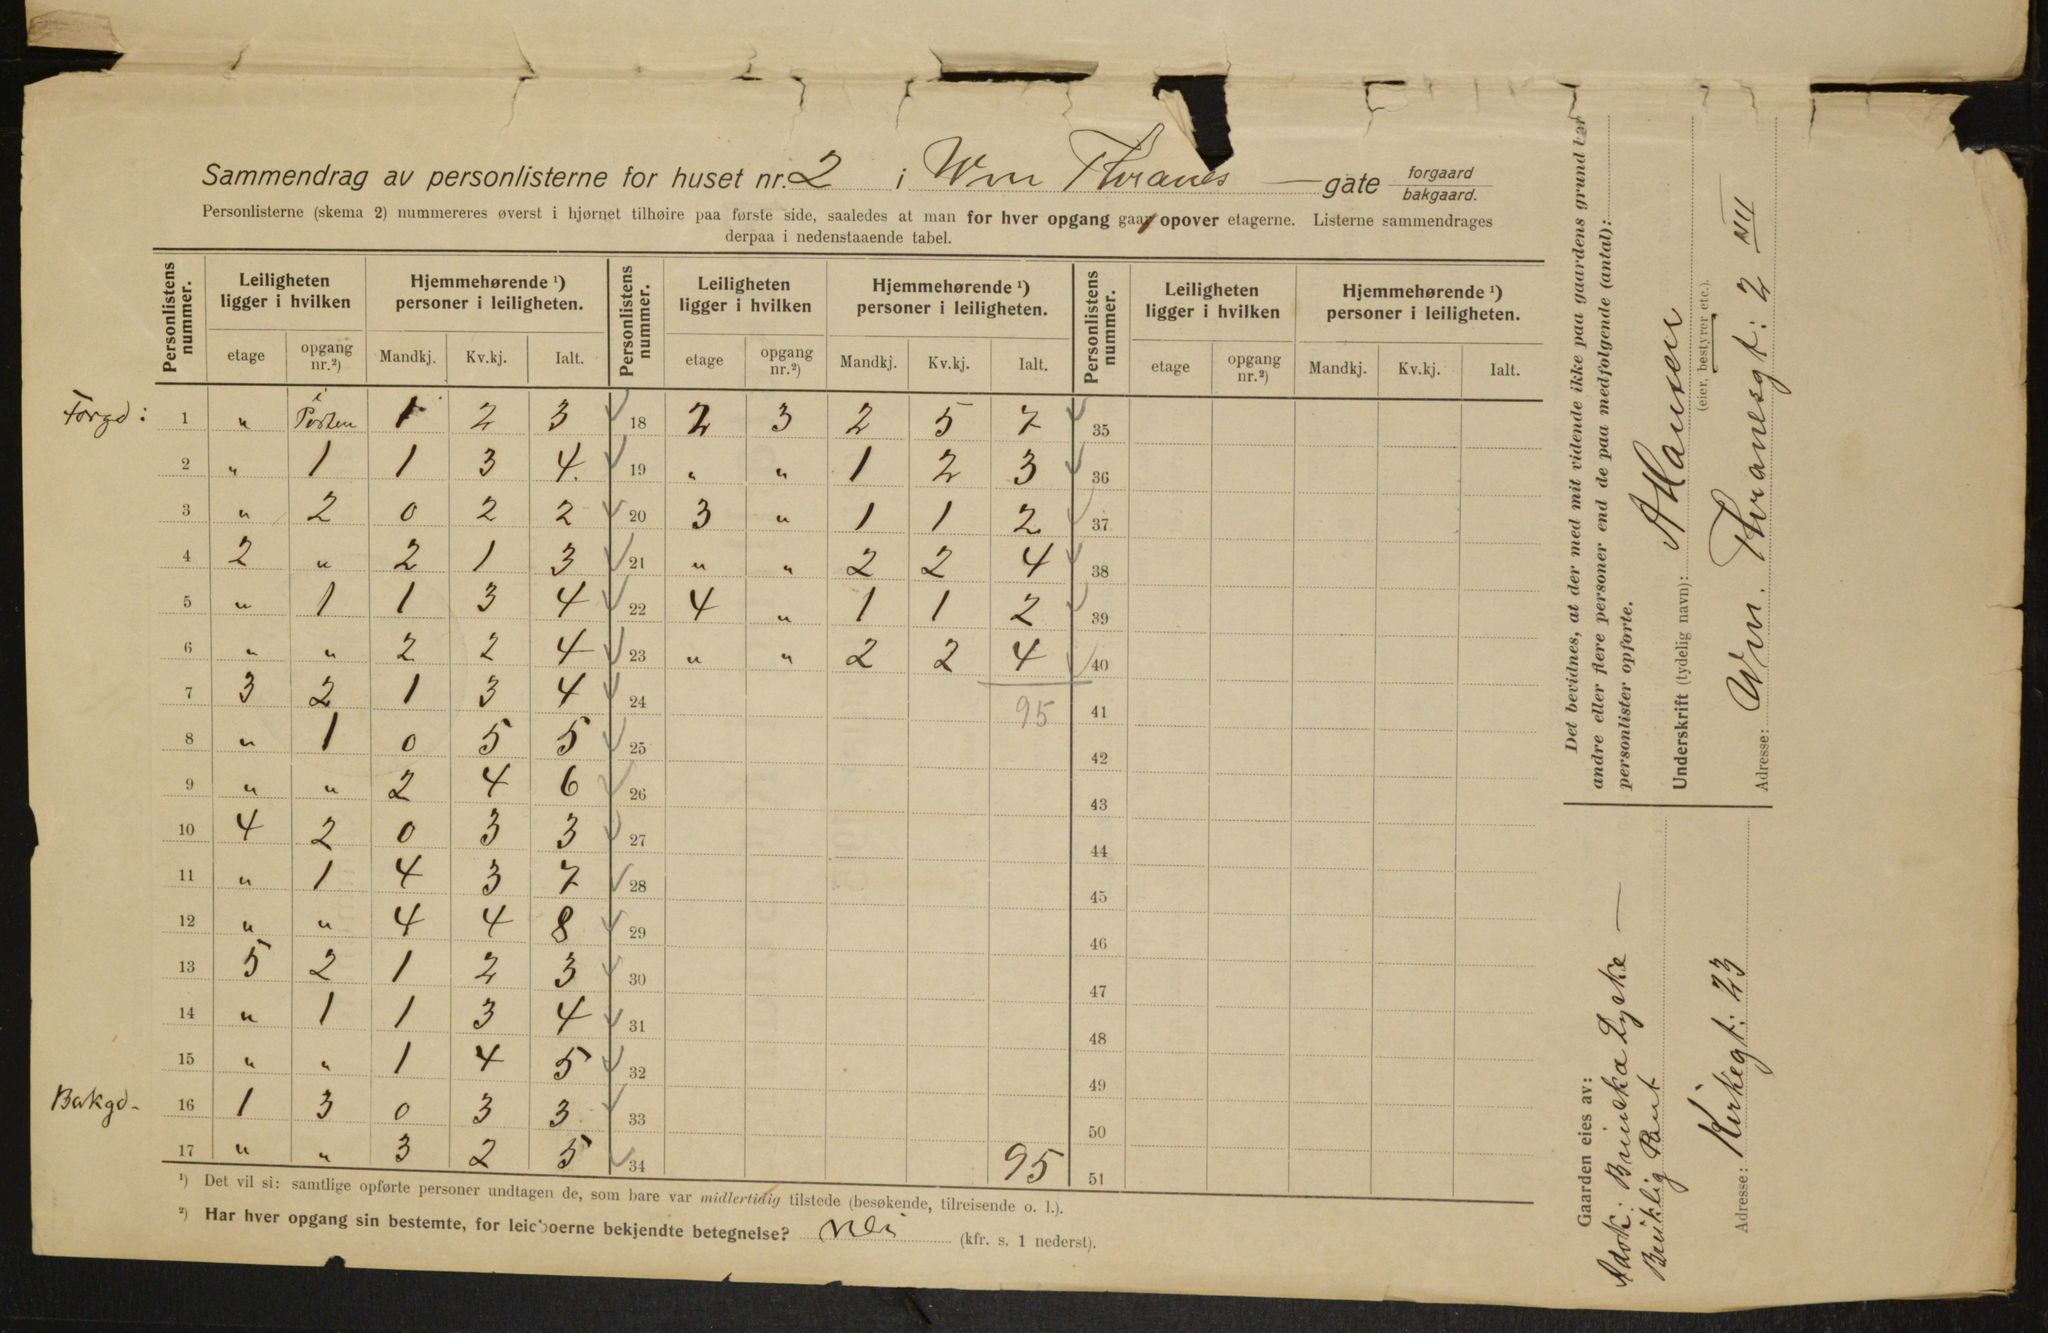 Sammendrag av personlisterne for huset nr. 2 i Wm Thranes — gate forgaard bakgaard.
Personlisterne (skema 2) nummereres øverst i hjørnet tilhøire paa første side, saaledes at man for hver opgang gaar opover etagerne. Listerne sammendrages
derpaa i nedenstaaende tabel.
Personlistens nummer. Leiligheten ligger i hvilken Hjemmehørende ¹) personer i leiligheten. Personlistens nummer. Leiligheten ligger i hvilken Hjemmehørende ¹) personer i leiligheten. Personlistens nummer. Leiligheten ligger i hvilken Hjemmehørende ¹) personer i leiligheten.
etage opgang nr.²) Mandkj. Kv.kj. Ialt. etage opgang nr.²) Mandkj. Kv.kj. Ialt. etage opgang nr.²) Mandkj. Kv.kj. Ialt.
Forgd: 1 " i Porten 1 2 3 18 2 3 2 5 7 35
2 " 1 1 3 4. 19 " " 1 2 3 36
3 " 2 0 2 2 20 3 " 1 1 2 37
4 2 " 2 1 3 21 " " 2 2 4 38
5 " 1 1 3 4 22 4 " 1 1 2 39
6 " " 2 2 4 23 " " 2 2 4 40
7 3 2 1 3 4 24 95 41
8 " 1 0 5 5 25 42
9 " " 2 4 6 26 43
10 4 2 0 3 3 27 44
11 " 1 4 3 7 28 45
12 " " 4 4 8 29 46
13 5 2 1 2 3 30 47
14 " 1 1 3 4 31 48
15 " " 1 4 5 32 49
Bakgd- 16 1 3 0 3 3 33 50
17 " " 3 2 5 34 95 51
¹) Det vil si: samtlige opførte personer undtagen de, som bare var midlertidig tilstede (besøkende, tilreisende o. l.).
²) Har hver opgang sin bestemte, for leieboerne bekjendte betegnelse? Nei (kfr. s. 1 nederst).
Det bevidnes, at der med mit vidende ikke paa gaardens grund bor
andre eller flere personer end de paa medfølgende (antal):
personlister opførte.
Underskrift (tydelig navn): A Hansen
(eier, bestyrer etc.).
Adresse: Wm. Thranesgt: 2 IV
Gaarden eies av:
Adok:
Adresse: Kirkegt: 23